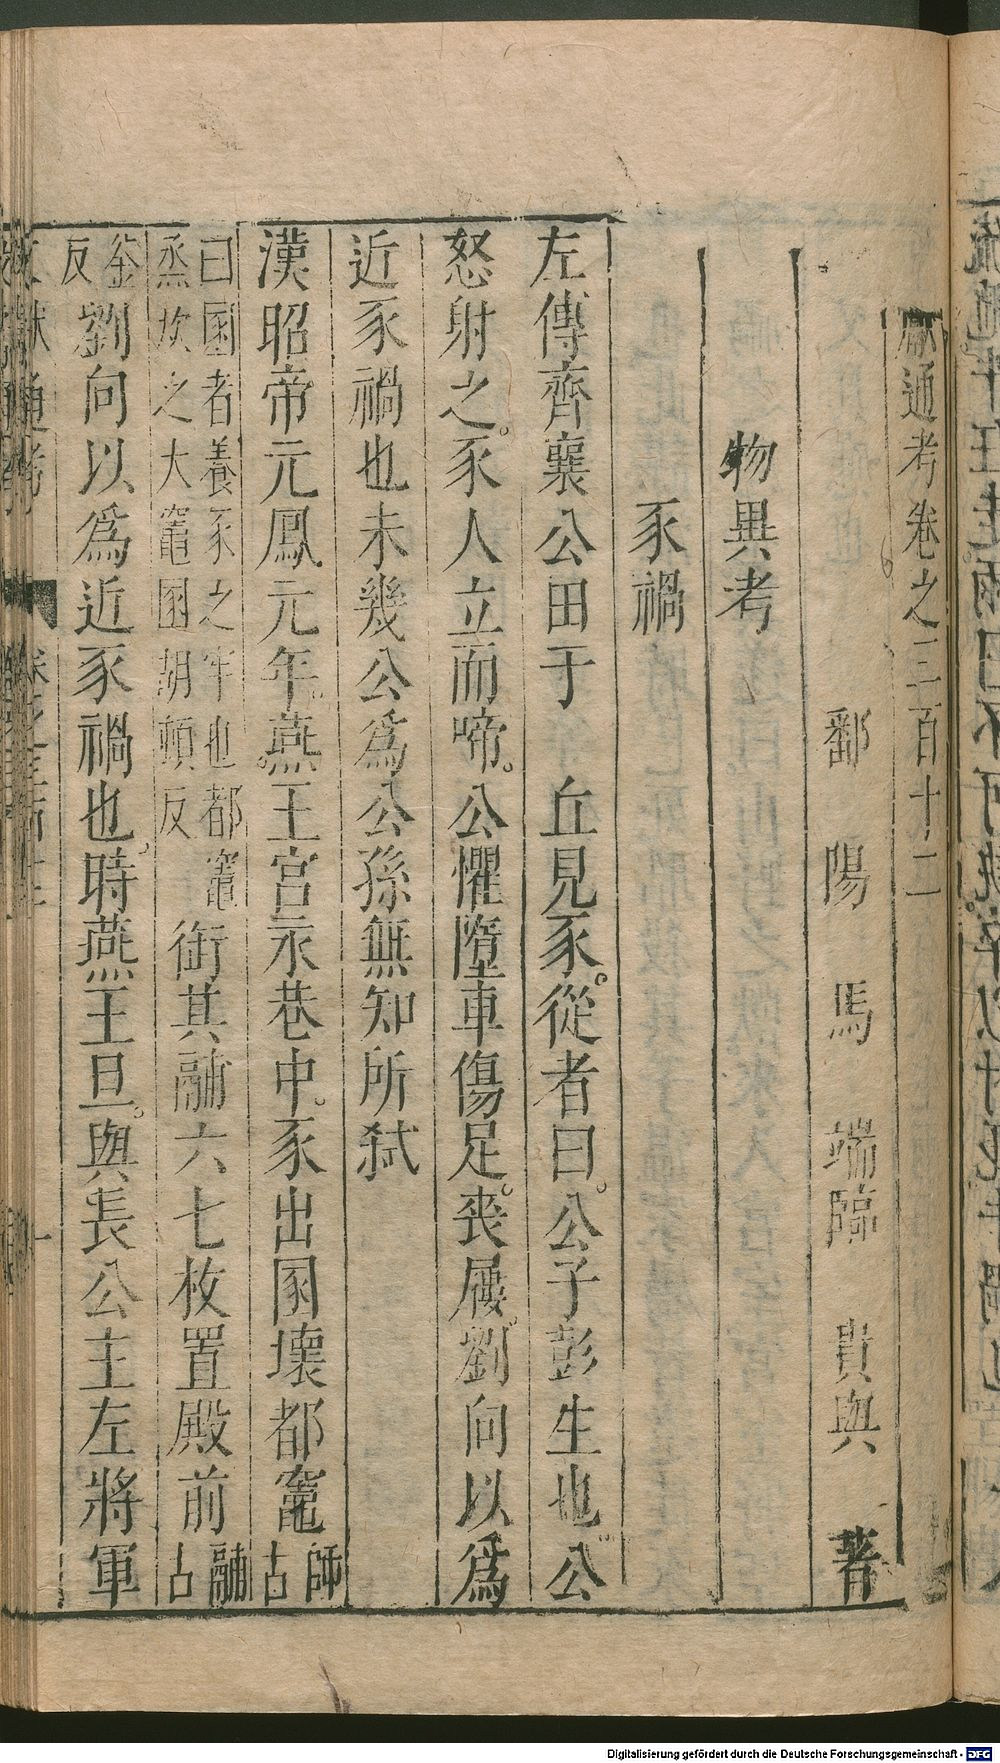 獻通考卷之三百十二
鄱陽馬端臨貴與著
物異考
豕禍
左傳齊襄公田于 丘見豕。從者曰。公子彭生也。公
怒射之。豕人立而啼。公懼墮車傷足。喪屨。劉向以為
近豕禍也未幾公為公孫無知所弒
漢昭帝元鳳元年。燕王宮永巷中。豕出圂壞都竈師古
曰圂者養豕之牢也都竈
烝炊之大竈圂胡頓反
銜其鬴六七枚置殿前鬴古
釜反
劉向以為近豕禍也。時燕王旦。與長公主左將軍
通考
Digitalisierung gefördert durch die Deutsche Forschungsgemeinschaft - DFG